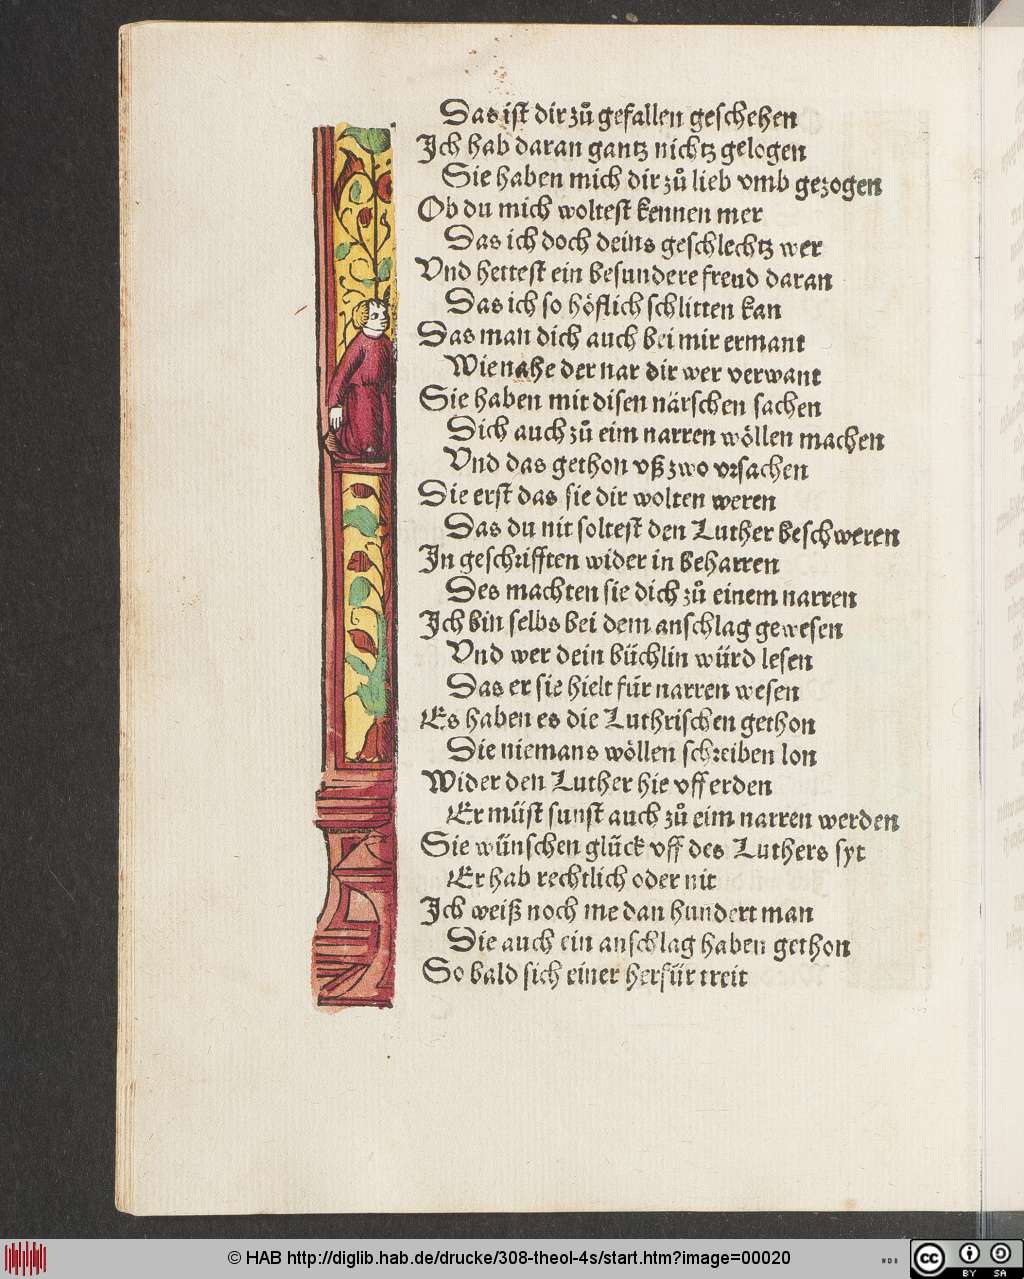 Das ist dir zů gefallen geschehen
Ich hab daran gantz nichtz gelogen
Sie haben mich dir zů lieb vmb gezogen
Ob du mich woltest kennen mer
Das ich doch deins geschlechtz wer
Vnd hettest ein besundere freud daran
Das ich so höflich schlitten kan
Das man dich auch bei mir ermant
Wie nahe der nar dir wer verwant
Sie haben mit disen närschen sachen
Dich auch zů eim narren wöllen machen
Vnd das gethon vß zwo vrsachen
Die erst das sie dir wolten weren
Das du nit soltest den Luther beschweren
In geschrifften wider in beharren
Des machten sie dich zů einem narren
Ich bin selbs bei dem anschlag gewesen
Vnd wer dein büchlin würd lesen
Das er sie hielt für narren wesen
Es haben es die Luthrischen gethon
Die niemans wöllen schreiben lon
Wider den Luther hie vff erden
Er müst sunst auch zů eim narren werden
Sie wünschen glück vff des Luthers syt
Er hab rechtlich oder nit
Ich weiß noch me dan hundert man
Die auch ein anschlag haben gethon
So bald sich einer herfür treit
© HAB http://diglib.hab.de/drucke/308-theol-4s/start.htm?image=00020
WDB
cc BY SA